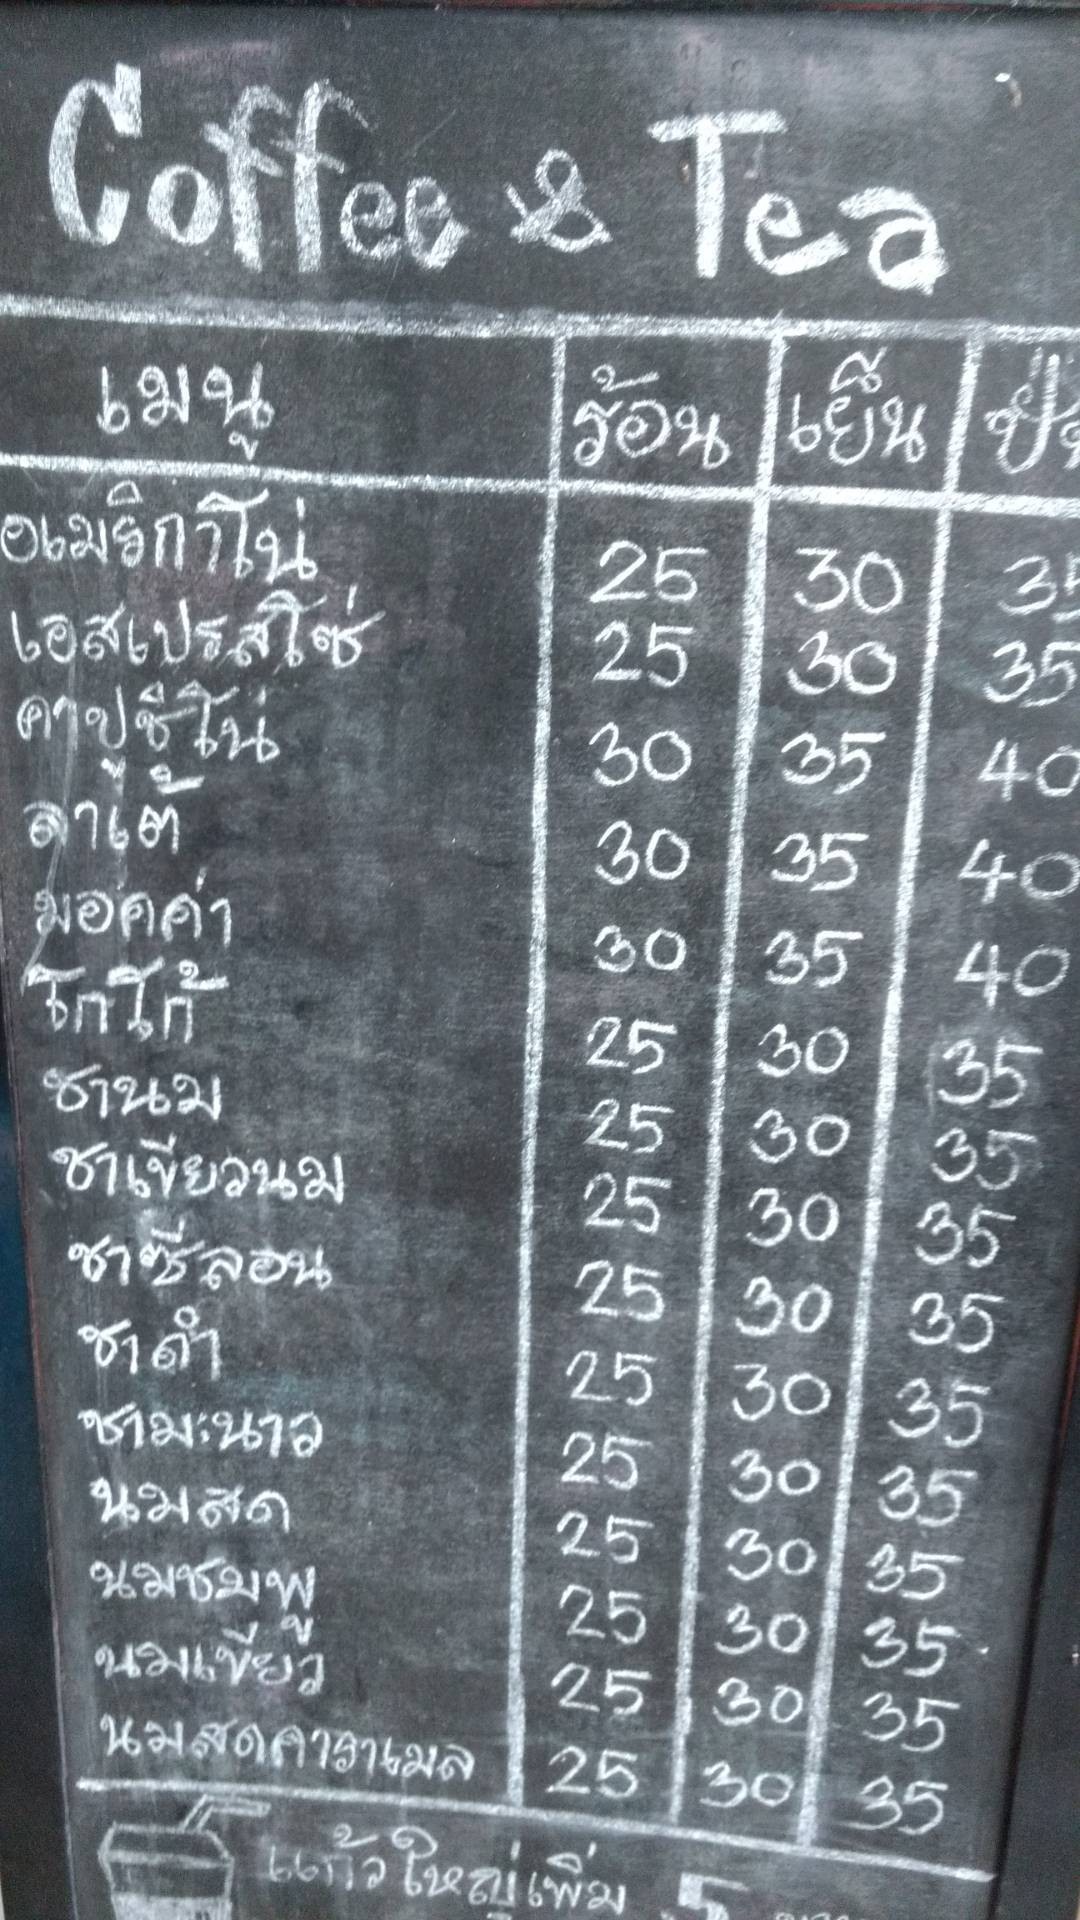 Coffee & Tea
เมนู ร้อน เย็น
อเมริกาโน่ 25 30 35
เอสเปรสโซ่ 25 30 35
คาปูชิโน่ 30 35 40
ลาเต้ 30 35 40
มอคค่า 30 35 40
โกโก้ 25 30 35
ชานม 25 30 35
ชาเขียวนม 25 30 35
ชาซีลอน 25 30 35
ชาดำ 25 30 35
ชามะนาว 25 30 35
นมสด 25 30 35
นมชมพู 25 30 35
นมเขียว 25 30 35
นมสดคาราเมล 25 30 35
แก้วใหญ่เพิ่ม 5